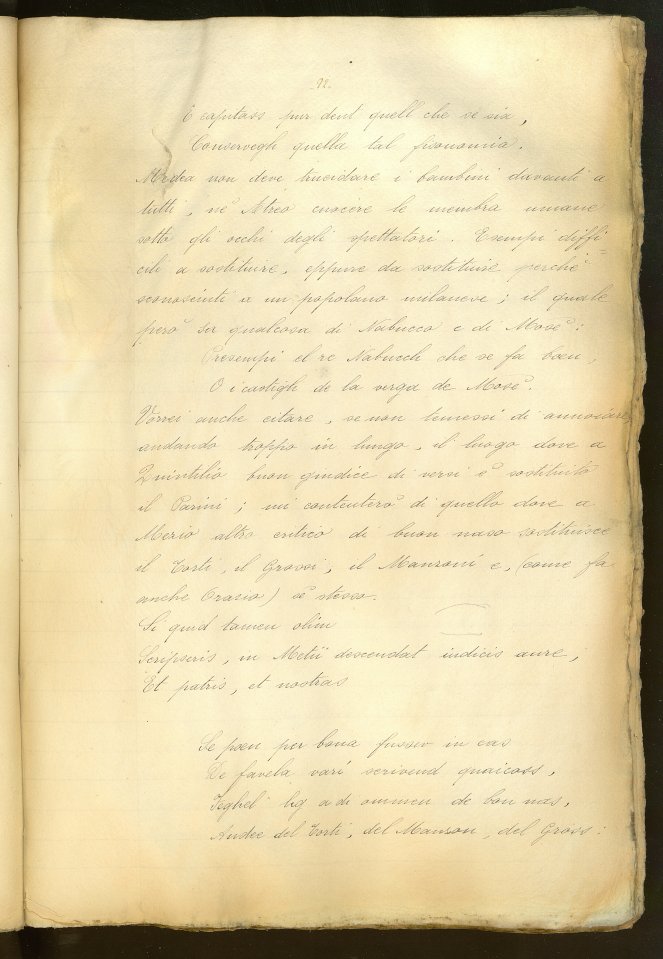 92.
E capitass pur dent quell che se sia,
Conservegh quella tal fisonomia.
Medea non deve trucidare i bambini davanti a
tutti, nè Atreo cuocere le membra umane
sotto gli occhi degli spettatori. Esempi diffi-
cili a sostituire, eppure da sostituire perchè
sconosciuti a un popolano milanese; il quale
però sa qualcosa di Nabucco e di Mosè:
Presempi el re Nabucch che se fa boeu,
O i castigh de la verga de Mosè.
Vorrei anche citare, se non temessi di annoiare
andando troppo in lungo, il luogo dove a
Quintilio buon giudice di versi è sostituito
il Parini; mi contenterò di quello dove a
Mezio altro critico di buon naso sostituisce
il Torti, il Grossi, il Manzoni e, (come fa
anche Orazio) sè stesso.
Si quid tamen olim
Scripseris, in Metii descendat iudicis aure,
Et patris, et nostras
Se poeu per bona fussev in cas
De favela vari scrivend quaicoss,
Leghel a di ommen de bon nas,
Andee del Torti, del Manzon, del Gross: